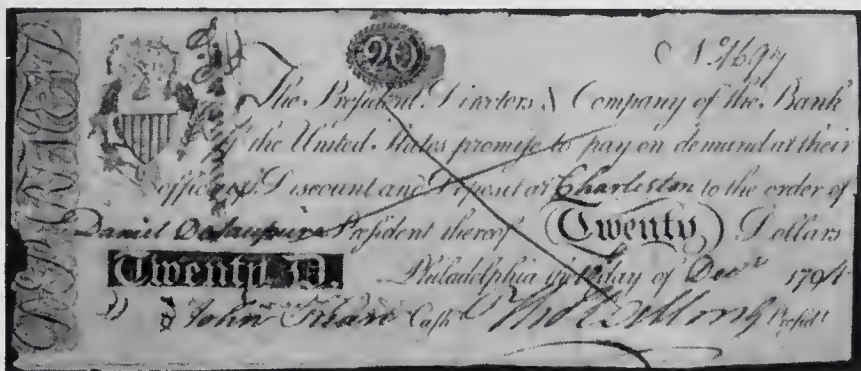 20
The President, Directors & Company of the Bank
of the United States promise to pay on demand at their
office of Discount and Deposit at Charleston to the order of
Daniel President thereof (Twenty) Dollars
Twenty D. Philadelphia day of Decr 179
John Cash Presidt